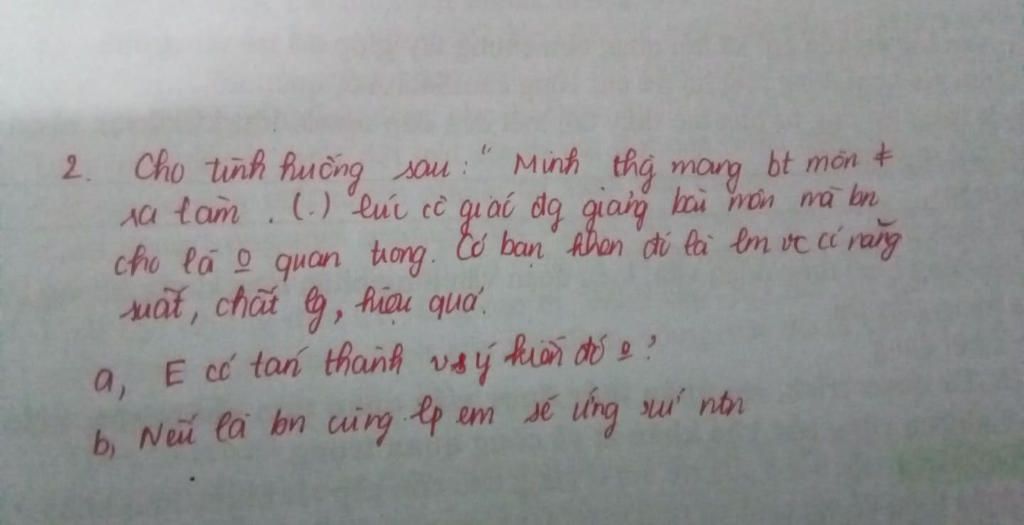 2. Cho tình huống sau: " Minh thg mang bt môn ≠
ra làm. (.) lúc cô giáo đg giảng bài môn mà bn
cho là o quan trọng. Có bạn khen đó là lm vc có năng
suất, chất lg, hiệu quả.
a, E có tán thành vs ý kiến đó o?
b, Nếu là bn cùng lp em sẽ ứng xử ntn